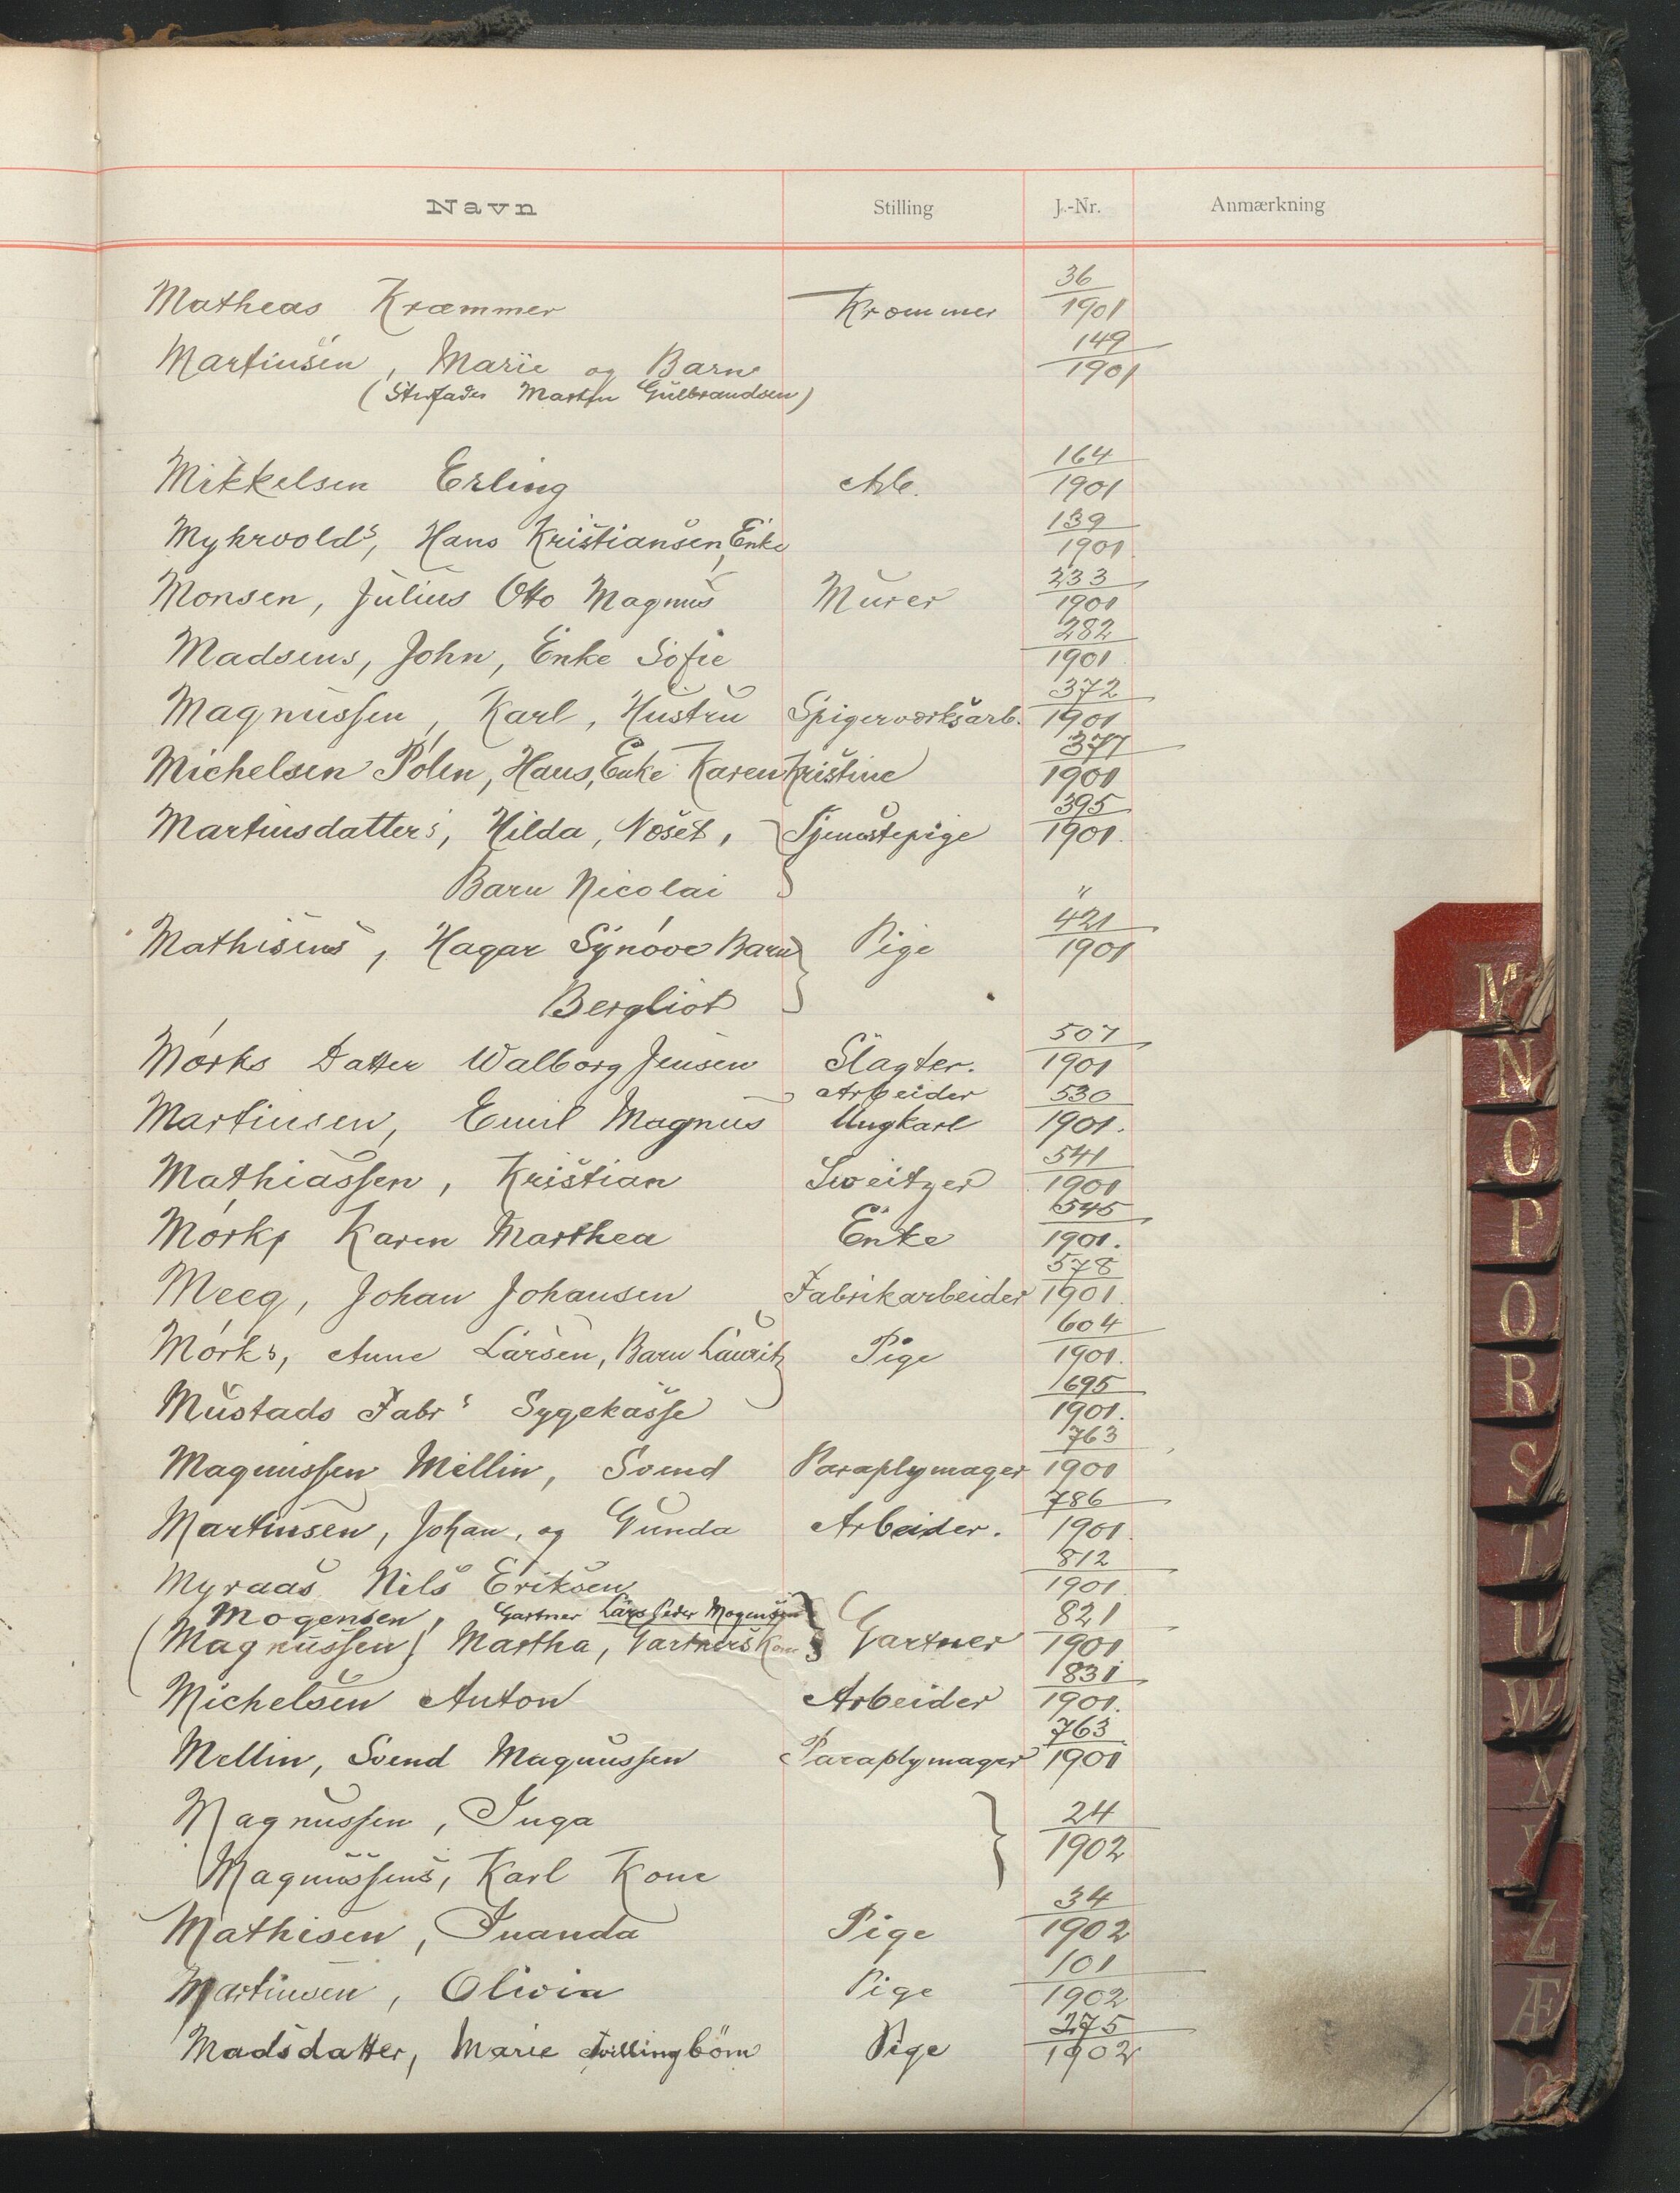 Navn Stilling J.-Nr. Anmærkning
36
Matheas Kræmmer Kræmmer 1901
149
Martinsen, Marie og Barn 1901
(Stedfader Martin Gulbrandsen)
164
Mikkelsen Erling Arb. 1901
139
Myhrvolds, Hans Kristiansen, Enke 1901
233
Monsen, Julius Otto Magnus Murer 1901
282
Madsens, John, Enke Sofie 1901
372
Magnussen, Karl, Hustru Spigerværksarb. 1901
377
Michelsen Polen, Hans, Enke Karen Kristine 1901
395
Martinsdatters, Hilda, Noset, Tjenestepige 1901
Barn Nicolai "
421
Mathisens, Hagar Synöve Barn Pige 1901
Bergliot
507
Mörks Datter Walborg Jensen Slagter. 1901
Arbeider 530
Martinsen, Emil Magnus Ungkarl 1901.
541
Mathiassen, Kristian Sveitzer 1901
545
Mörk, Karen Marthea Enke 1901.
578
Meeg, Johan Johansen Fabrikarbeider 1901
604
Mörks, Anne Larsen, Barn Lauritz Pige 1901.
695
Mustads Fabrs Sygekasse 1901.
763
Magnussen Mellin, Svend Paraplymager 1901
786
Martinsen, Johan, og Gunda Arbeider. 1901
812
Myraas Nils Eriksen 1901
Mogensen, Gartner Lars Peder Mogensen 821
(Magnussen) Martha, Gartners Kone Gartner 1901
831
Michelsen Anton Arbeider 1901.
763
Mellin, Svend Magnussen Paraplymager 1901
Magnussen, Inga 24
1902
Magnussens, Karl Kone
34
Mathisen, Inanda Pige 1902
101
Martinsen, Olivia Pige 1902
275
Madsdatter, Marie tvillingbörn Pige 1902
M
N
O
P
Q
R
S
T
U
W
X
Y
Z
Æ
Ø